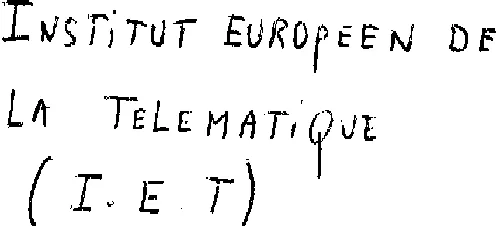 INSTITUT EUROPEEN DE
LA TELEMATIQUE
(I. E. T)